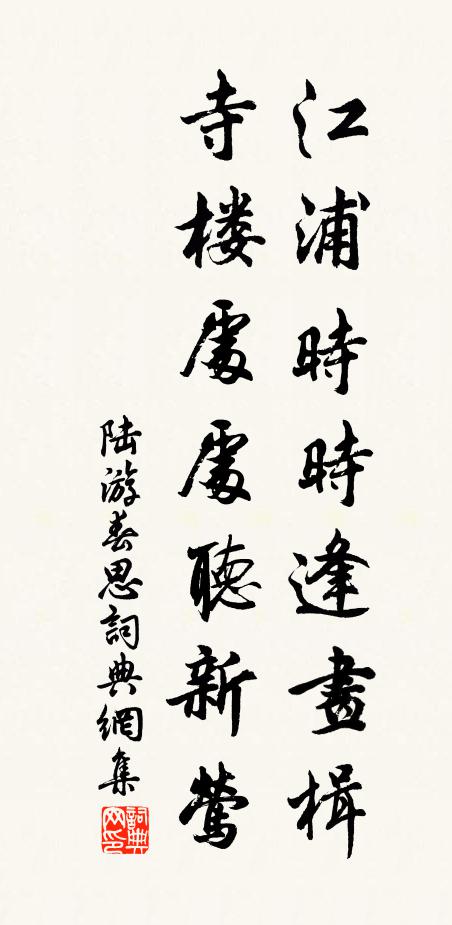 江浦時時逢畫楫
寺楼處處聽新鶯
陸游春思詞典網集
詞典网印